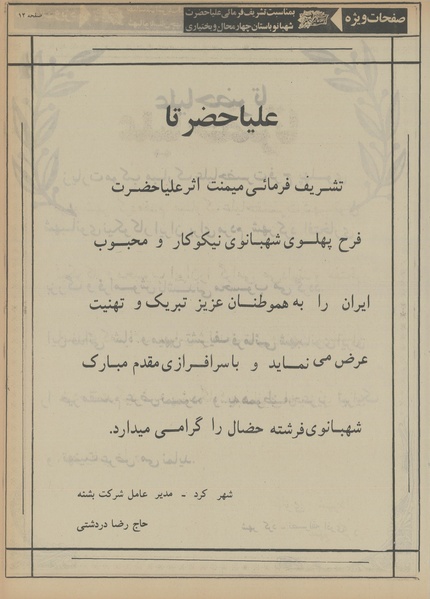 صفحات ویژه
بمناسبت تشریف فرمائی علیاحضرت
شهبانو باستان چهارمحال و بختیاری
صفحه ۱۲
علیاحضرتا
تشریف فرمائی میمنت اثر علیاحضرت
فرح پهلوی شهبانوی نیکوکار و محبوب
ایران را به هموطنان عزیز تبریک و تهنیت
عرض می نماید و با سرافرازی مقدم مبارک
شهبانوی فرشته خصال را گرامی میدارد.
شهر کرد - مدیر عامل شرکت بشنه
حاج رضا دردشتی